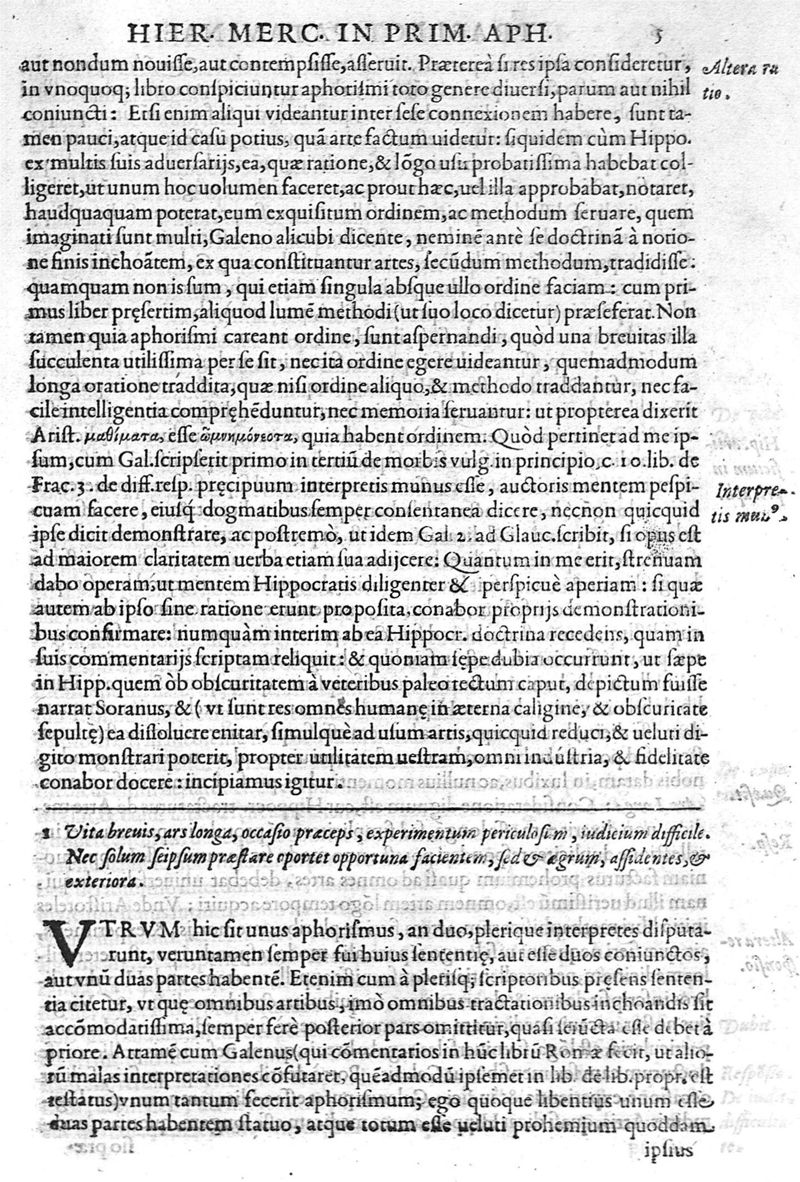 HIER. MERC. IN PRIM. APH. 5
aut nondum nouisse, aut contempsisse, asseruit. Prætereà si res ipsa consideretur,
Altera ra
in vnoquoq; libro conspiciuntur aphorismi toto genere diuersi, parum aut nihil
tio.
coniuncti: Etsi enim aliqui videantur inter sese connexionem habere, sunt ta-
men pauci, atque id casu potius, quã arte factum uidetur: siquidem cùm Hippo.
ex multis suis aduersarijs, ea, quæ ratione, & lõgo usu probatissima habebat col-
ligeret, ut unum hoc uolumen faceret, ac prout hæc, uel illa approbabat, notaret,
haudquaquam poterat, eum exquisitum ordinem, ac methodum seruare, quem
imaginati sunt multi, Galeno alicubi dicente, neminẽ antè se doctrinã à notio-
ne finis inchoãtem, ex qua constituantur artes, secũdum methodum, tradidisse:
quamquam non is sum, qui etiam singula absque ullo ordine faciam: cum pri-
mus liber pręsertim, aliquod lumẽ methodi (ut suo loco dicetur) præseferat. Non
tamen quia aphorismi careant ordine, sunt aspernandi, quòd una breuitas illa
succulenta utilissima per se sit, nec ita ordine egere uideantur, quemadmodum
longa oratione traddita, quæ nisi ordine aliquo, & methodo traddantur, nec fa-
cile intelligentia compręhẽduntur, nec memoria seruantur: ut propterea dixerit
Arist. μαθίματα, esse ῶμνημόνεστα, quia habent ordinem. Quòd pertinet ad me ip-
sum, cum Gal. scripserit primo in tertiũ de morbis vulg. in principio, c. 10. lib. de
Frac. 3. de diff. resp. pręcipuum interpretis munus esse, auctoris mentem pespi-
Interpre-
cuam facere, eiusq́; dogmatibus semper consentanea dicere, necnon quicquid
tis mun9.
ipse dicit demonstrare, ac postremò, ut idem Gal. 2. ad Glauc. scribit, si opus est
ad maiorem claritatem uerba etiam sua adijcere: Quantum in me erit, strenuam
dabo operam, ut mentem Hippocratis diligenter & perspicuè aperiam: si quæ
autem ab ipso sine ratione erunt proposita, conabor proprijs demonstrationi-
bus confirmare: numquàm interim ab ea Hippocr. doctrina recedens, quam in
suis commentarijs scriptam reliquit: & quoniam sępe dubia occurrunt, ut sæpe
in Hipp. quem òb obscuritatem à veteribus paleo tectum caput, depictum fuisse
narrat Soranus, & (vt sunt res omnes humanę in æterna caligine, & obscuritate
sepultę) ea dissoluere enitar, simulquè ad usum artis, quicquid reduci, & ueluti di-
gito monstrari poterit, propter utilitatem uestram, omni industria, & fidelitate
conabor docere: incipiamus igitur.
1 Vita breuis, ars longa, occasio præceps, experimentum periculosum, iudicium difficile.
Nec solum seipsum præstare oportet opportuna facientem, sed & ægrum, assidentes, &
exteriora.
VTRVM hic sit unus aphorismus, an duo, plerique interpretes disputa-
runt, veruntamen semper fui huius sententię, aut esse duos coniunctos,
aut vnũ duas partes habentẽ. Etenim cum à plerisq; scriptoribus pręsens senten-
tia citetur, vt quę omnibus artibus, imò omnibus tractationibus inchoandis sit
accõmodatissima, semper ferè posterior pars omittitur, quasi seiũcta esse debet à
priore. Attamẽ cum Galenus (qui cõmentarios in hũc librũ Romæ fecit, ut alio-
rũ malas interpretationes cõfutaret, quẽadmodũ ipsemet in lib. de lib. propr. est
testatus) vnum tantum fecerit aphorismum; ego quoque libentius unum esse
duas partes habentem statuo, atque totum esse ueluti prohemium quoddam
ipsius